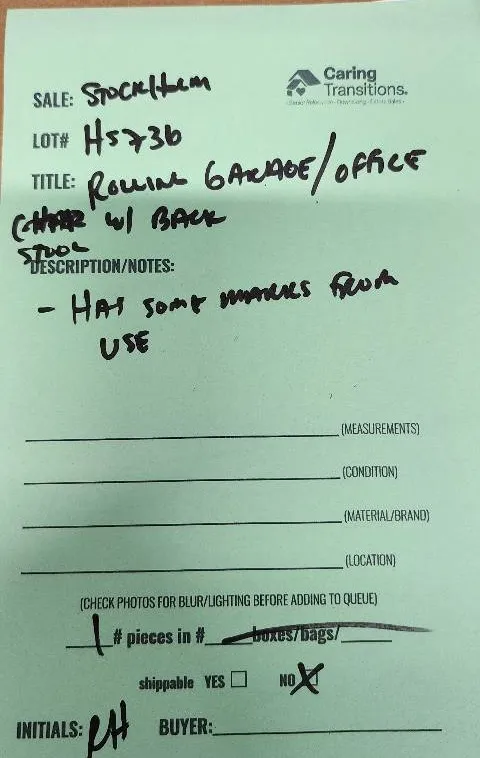 Caring
Transitions.
SALE: STOCKHOLM
LOT# H5736
TITLE: ROLLING GARAGE/OFFICE
CHAIR W/ BACK
STOOL
DESCRIPTION/NOTES:
- HAS SOME MARKS FROM
USE
(MEASUREMENTS)
(CONDITION)
(MATERIAL/BRAND)
(LOCATION)
(CHECK PHOTOS FOR BLUR/LIGHTING BEFORE ADDING TO QUEUE)
1 # pieces in # boxes/bags/
shippable YES NO X
INITIALS: RH BUYER: